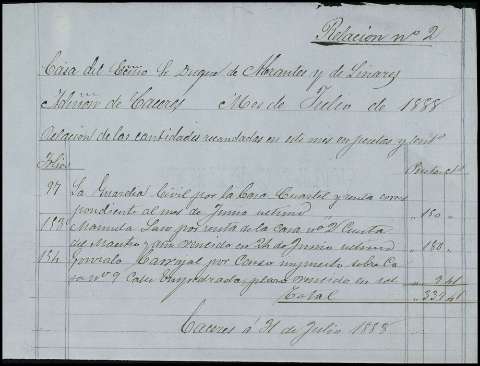 Relacion nº 2
Casa del Excmo Sr Duque de Abrantes y de Linares
Admon de Caceres Mes de Julio de 1888
Relacion de las cantidades recaudadas en este mes en pesetas y cents
Folios Pesetas cts
97 La Guardia Civil por la Casa Cuartel y renta corres
pondiente al mes de Junio ultimo " 150 "
153 Manuela por renta de la casa nº 2 Cuesta
del Maestre y plazo vencido en 24 de Junio ultimo " 180 "
154 Gonzalo Carvajal por Censo impuesto sobre la Ca
sa nº 9 Calle Empedrada plazo vencido en " 9 41
Total 339 41
Caceres á 31 de Julio 1888